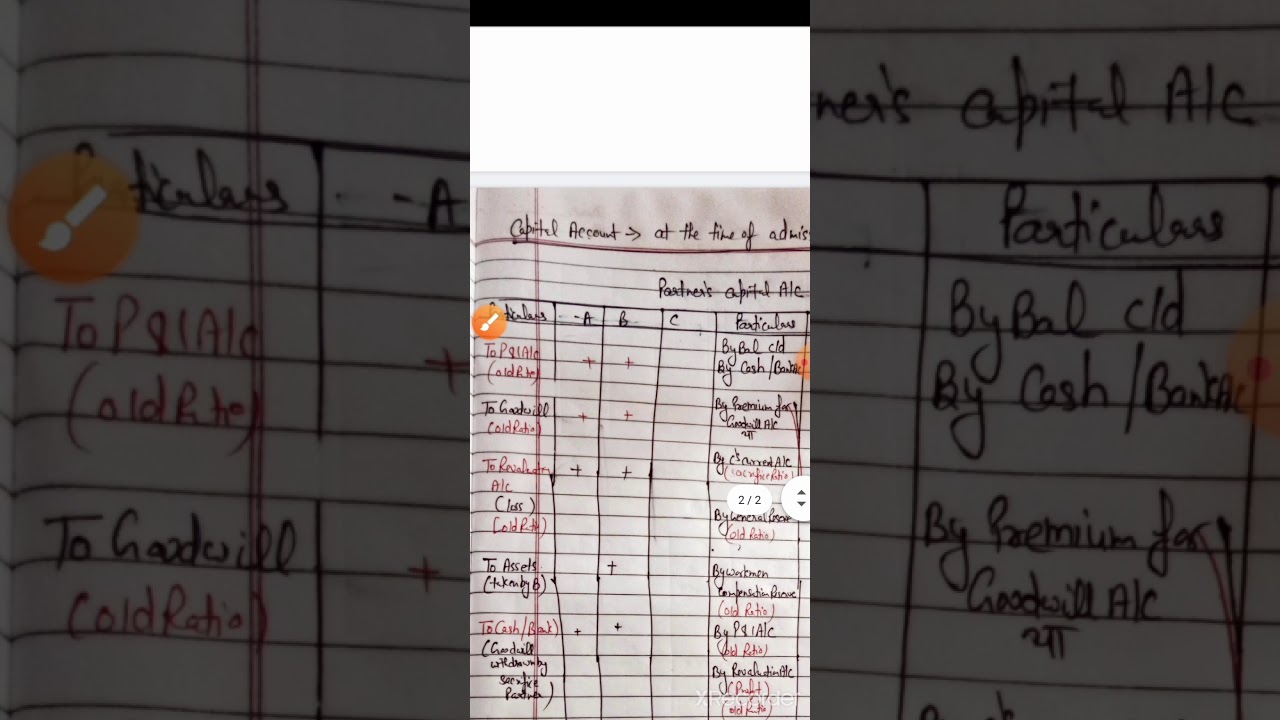 Capital Account → at the time of admis
Partner's capital A/C
Particulars A B C Particulars
To P&lA/c + + By Bal c/d
(old Ratio) By Cash/Bank A/c
To Goodwill + + By Premium for
(old Ratio) Goodwill A/c
या
To Revaluation + + By C's current A/C
A/c (sacrifice Ratio)
(loss)
(old Ratio) By General Reserve
(old Ratio)
2/2
To Assets + By workmen
(taken by B) Compensation Reserve
(old Ratio)
To Cash/Bank) + + By P&lA/c
(Goodwill (old Ratio)
withdrawn by By Revaluation A/c
sacrifice (Profit)
Partner) (old Ratio)
XRecorder
Particulars -A
To P&lA/c +
(old Ratio)
To Goodwill +
(old Ratio)
ner's capital A/C
Particulars
By Bal c/d
By Cash/Bank A/c
By Premium for
Goodwill A/c
या